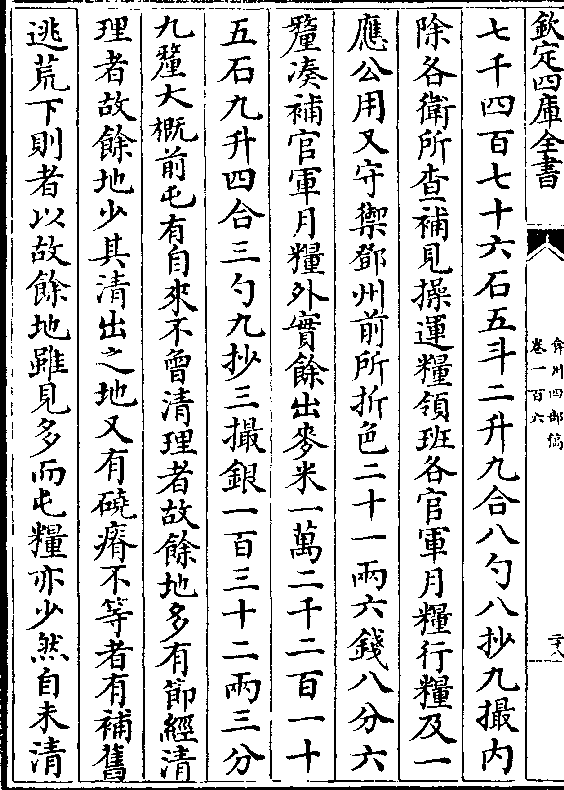 欽定四庫全書
弇州四部稿
卷一百六
二十八
七千四百七十六石五斗二升九合八勺八抄九撮内
除各衛所查補見操運糧領班各官軍月糧行糧及一
應公用又守禦鄧州前所折色二十一兩六錢八分六
釐凑補官軍月糧外實餘出麥米一萬二千二百一十
五石九升四合三勺九抄三撮銀一百三十二兩三分
九釐大概前屯有自來不曾清理者故餘地多有節經清
理者故餘地少其清出之地又有磽瘠不等者有補舊
逃荒下則者以故餘地雖見多而屯糧亦少然自未清